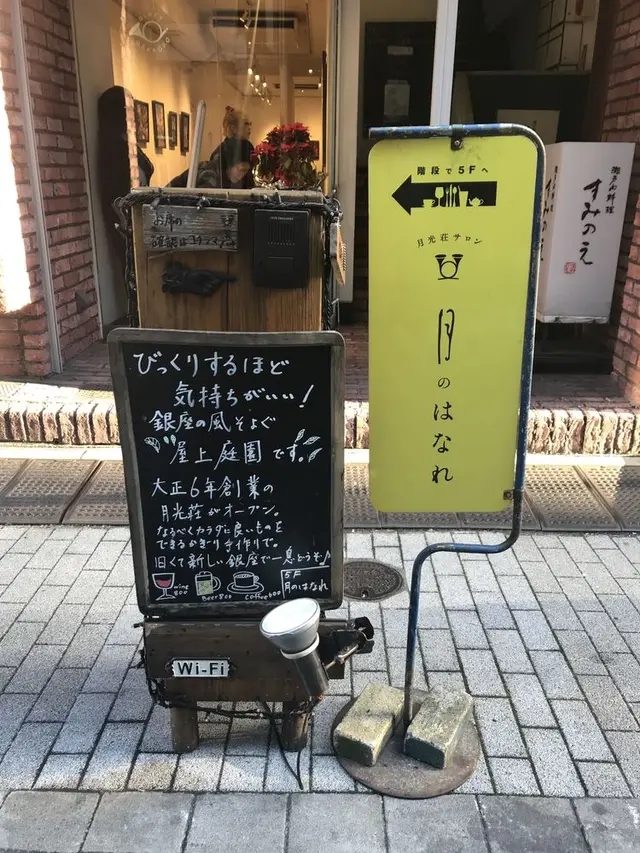 階段で5Fへ
月光荘サロン
月のはなれ
お席の
確認はコチラ
びっくりするほど
気持ちがいい!
銀座の風そよぐ
"屋上庭園"です。
大正6年創業の
月光荘がオープン。
なるべくカラダに良いものを
できるかぎり手作りで。
旧くて新しい銀座で一息どうぞ♪
wine
800
Beer 800
coffee 600
5F
月のはなれ
Wi-Fi
すみのえ